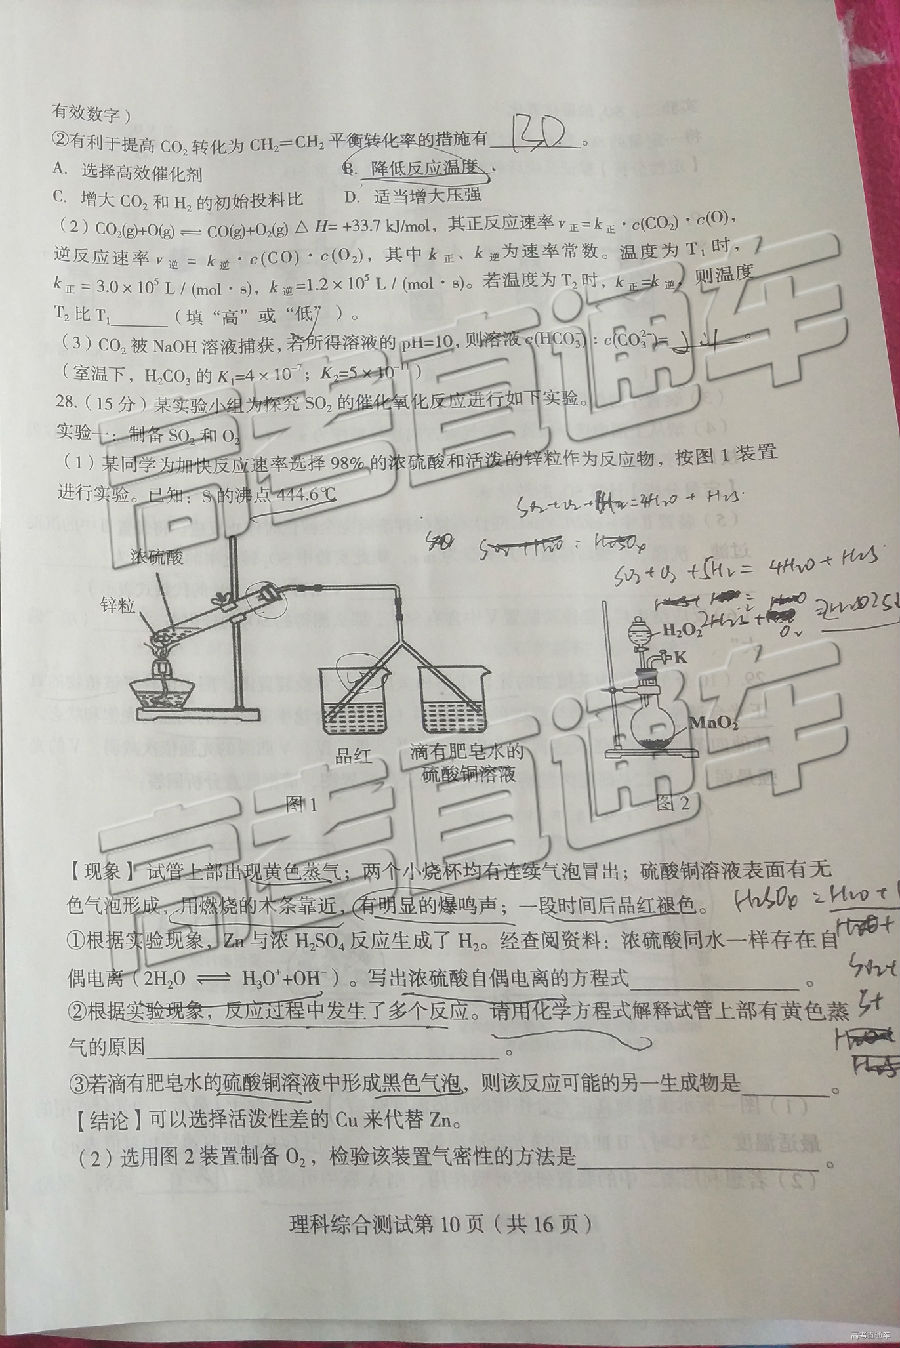 有效数字）
②有利于提高 CO₂ 转化为 CH₂=CH₂ 平衡转化率的措施有 BD 。
A. 选择高效催化剂 B. 降低反应温度
C. 增大 CO₂ 和 H₂ 的初始投料比 D. 适当增大压强
（2）CO₂(g)+O(g) ⇌ CO(g)+O₂(g) △ H= +33.7 kJ/mol，其正反应速率 v正=k正·c(CO₂)·c(O)，
逆反应速率 v逆 = k逆·c(CO)·c(O₂)，其中 k正、k逆为速率常数。温度为 T₁ 时，
k正 = 3.0×10⁵ L / (mol·s)，k逆=1.2×10⁵ L / (mol·s)。若温度为T₂时，k正=k逆，则温度
T₂ 比 T₁______（填“高”或“低”）。
（3）CO₂ 被 NaOH 溶液捕获，若所得溶液的 pH=10，则溶液 c(HCO₃⁻) : c(CO₃²⁻)= 2:1 。
（室温下，H₂CO₃ 的 K₁=4×10⁻⁷；K₂=5×10⁻¹¹）
28.（15 分）某实验小组为探究 SO₂ 的催化氧化反应进行如下实验。
实验一：制备 SO₂ 和 O₂
（1）某同学为加快反应速率选择 98% 的浓硫酸和活泼的锌粒作为反应物，按图 1 装置
进行实验。已知：S 的沸点 444.6℃
SO₂+O₂+5H₂= 4H₂O + H₂S
浓硫酸
锌粒
H₂O₂
K
MnO₂
品红
滴有肥皂水的
硫酸铜溶液
图 1
图 2
【现象】试管上部出现黄色蒸气；两个小烧杯均有连续气泡冒出；硫酸铜溶液表面有无
色气泡形成，用燃烧的木条靠近，有明显的爆鸣声；一段时间后品红褪色。
①根据实验现象，Zn 与浓 H₂SO₄ 反应生成了 H₂。经查阅资料：浓硫酸同水一样存在自
偶电离（2H₂O ⇌ H₃O⁺+OH⁻）。写出浓硫酸自偶电离的方程式________________。
②根据实验现象，反应过程中发生了多个反应。请用化学方程式解释试管上部有黄色蒸
气的原因________________________________。
③若滴有肥皂水的硫酸铜溶液中形成黑色气泡，则该反应可能的另一生成物是________。
【结论】可以选择活泼性差的 Cu 来代替 Zn。
（2）选用图 2 装置制备 O₂，检验该装置气密性的方法是______________________。
理科综合测试第 10 页（共 16 页）
高考直通车
高考直通车
高考直通车